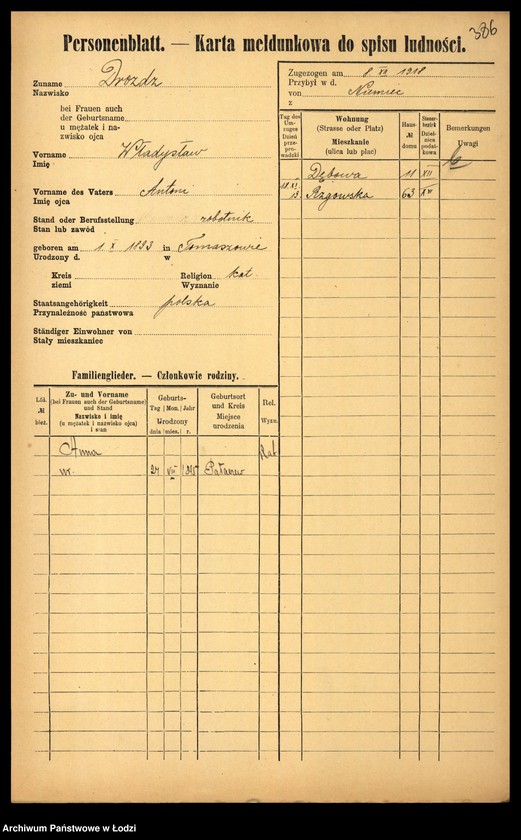 386
Personenblatt. — Karta meldunkowa do spisu ludności.
Zuname Drozdz
Nazwisko
bei Frauen auch
der Geburtsname
u mężatek i na-
zwisko ojca
Vorname Władysław
Imię
Vorname des Vaters Antoni
Imię ojca
Stand oder Berufsstellung robotnik
Stan lub zawód
geboren am 1 X 1893 in Tomaszowie
Urodzony d. w
Kreis Religion kat.
ziemi Wyznanie
Staatsangehörigkeit polska
Przynależność państwowa
Ständiger Einwohner von
Stały mieszkaniec
Zugezogen am 8 XII 1918
Przybył w d.
von Niemiec
z
Tag des Um-zuges Dzień prze-prowadzki
Wohnung (Strasse oder Platz) Mieszkanie (ulica lub plac)
Haus- № domu
Steuer-bezirk Dzielnica podat-kowa
Bemerkungen Uwagi
Dębowa 11 XII
18.XI 13. Rzgowska 63 XV
Familienglieder. — Członkowie rodziny.
Lfd. № bież.
Zu- und Vorname (bei Frauen auch der Geburtsname) und Stand Nazwisko i imię (u mężatek i nazwisko ojca) i stan
Geburts- Tag Mon. Jahr Urodzony dnia mies. r.
Geburtsort und Kreis Miejsce urodzenia
Rel. Wyzn.
Anna Kat
ur. 27 VII
Archiwum Państwowe w Łodzi